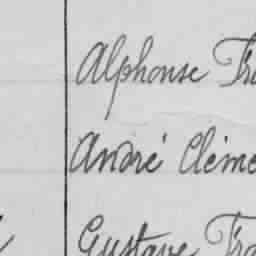 Alphonse Fra
André Cléme
Gustave Fra